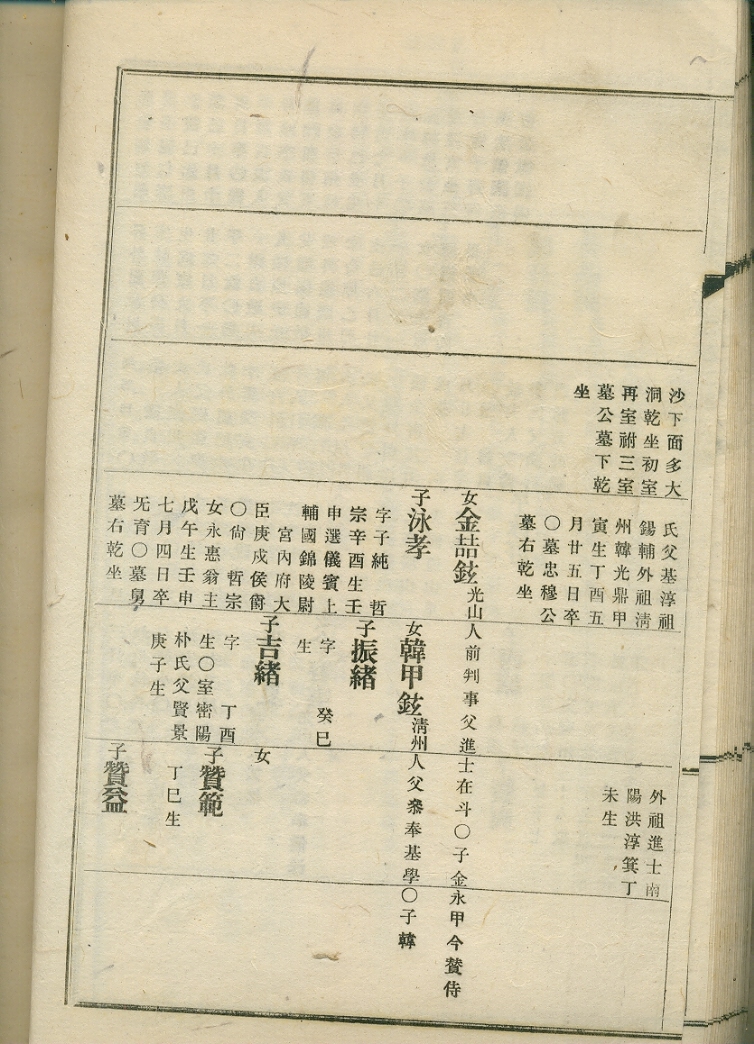 沙下面多大
洞乾坐初室
再室祔三室
墓公墓下乾
坐
氏父基淳祖
錫輔外祖淸
州韓光鼎甲
寅生丁酉五
月廿五日卒
〇墓忠穆公
墓右乾坐
女金喆鉉光山人前判事父進士在斗〇子金永甲今贊侍
子泳孝
字子純 哲
宗辛酉生壬
申選儀賓上
輔國錦陵尉
宮內府大
臣庚戌侯爵
〇尙 哲宗
女永惠翁主
戊午生壬申
七月四日卒
无育〇墓舅
墓右乾坐
外祖進士南
陽洪淳箕丁
未生
女韓甲鉉淸州人父叅奉基學〇子韓
子振緖
字 癸巳
生
子吉緖
字 丁酉
生〇室密陽
朴氏父賢景
庚子生
女
子贊範
丁巳生
子贊益